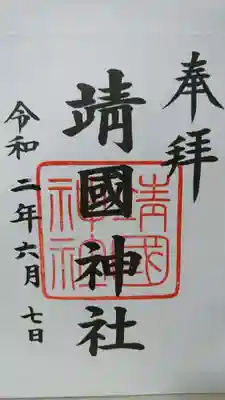 奉拝
靖國神社
靖國神社
令和二年六月七日